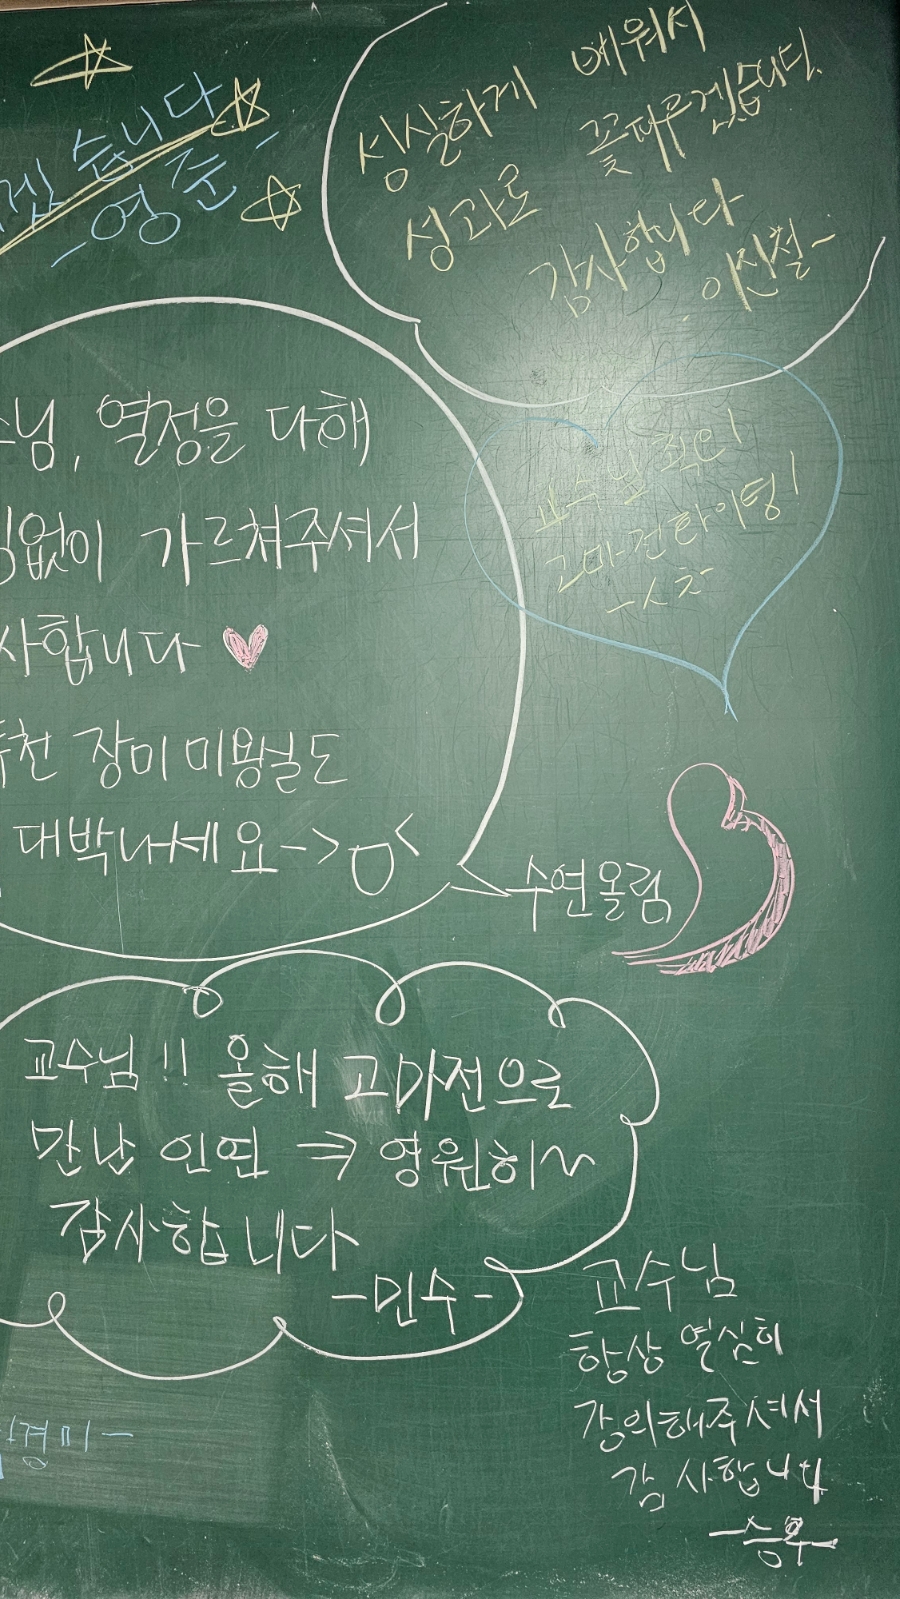 습니다
-영준-
성실하게 배워서
성과로 꽃피우겠습니다.
감사합니다
이진철-
님, 열정을 다해
없이 가르쳐주셔서
사합니다
천 장미 미용실도
대박나세요->ㅁ<
수연올림
교수님 최고!
고마전 화이팅!
교수님!! 올해 고마전으로
만난 인연 => 영원히~
감사합니다
-민수-
교수님
항상 열심히
강의해주셔서
감사합니다
-승우-
경미-